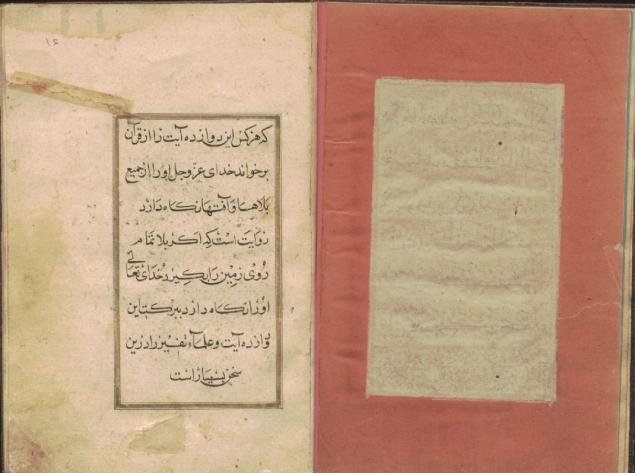 ۱۶
که هرکس این دوازده آیت را از قرآن
برخواند خدای عزّ وجل او را از جمیع
بلاها و آفتها نگاه دارد
روایت است که اگر بلا تمام
روی زمین را بگیرد خدای تعالی
او را نگاه دارد ببرکت این
دوازده آیت و علماء تفسیر را درین
سخن بسیار است